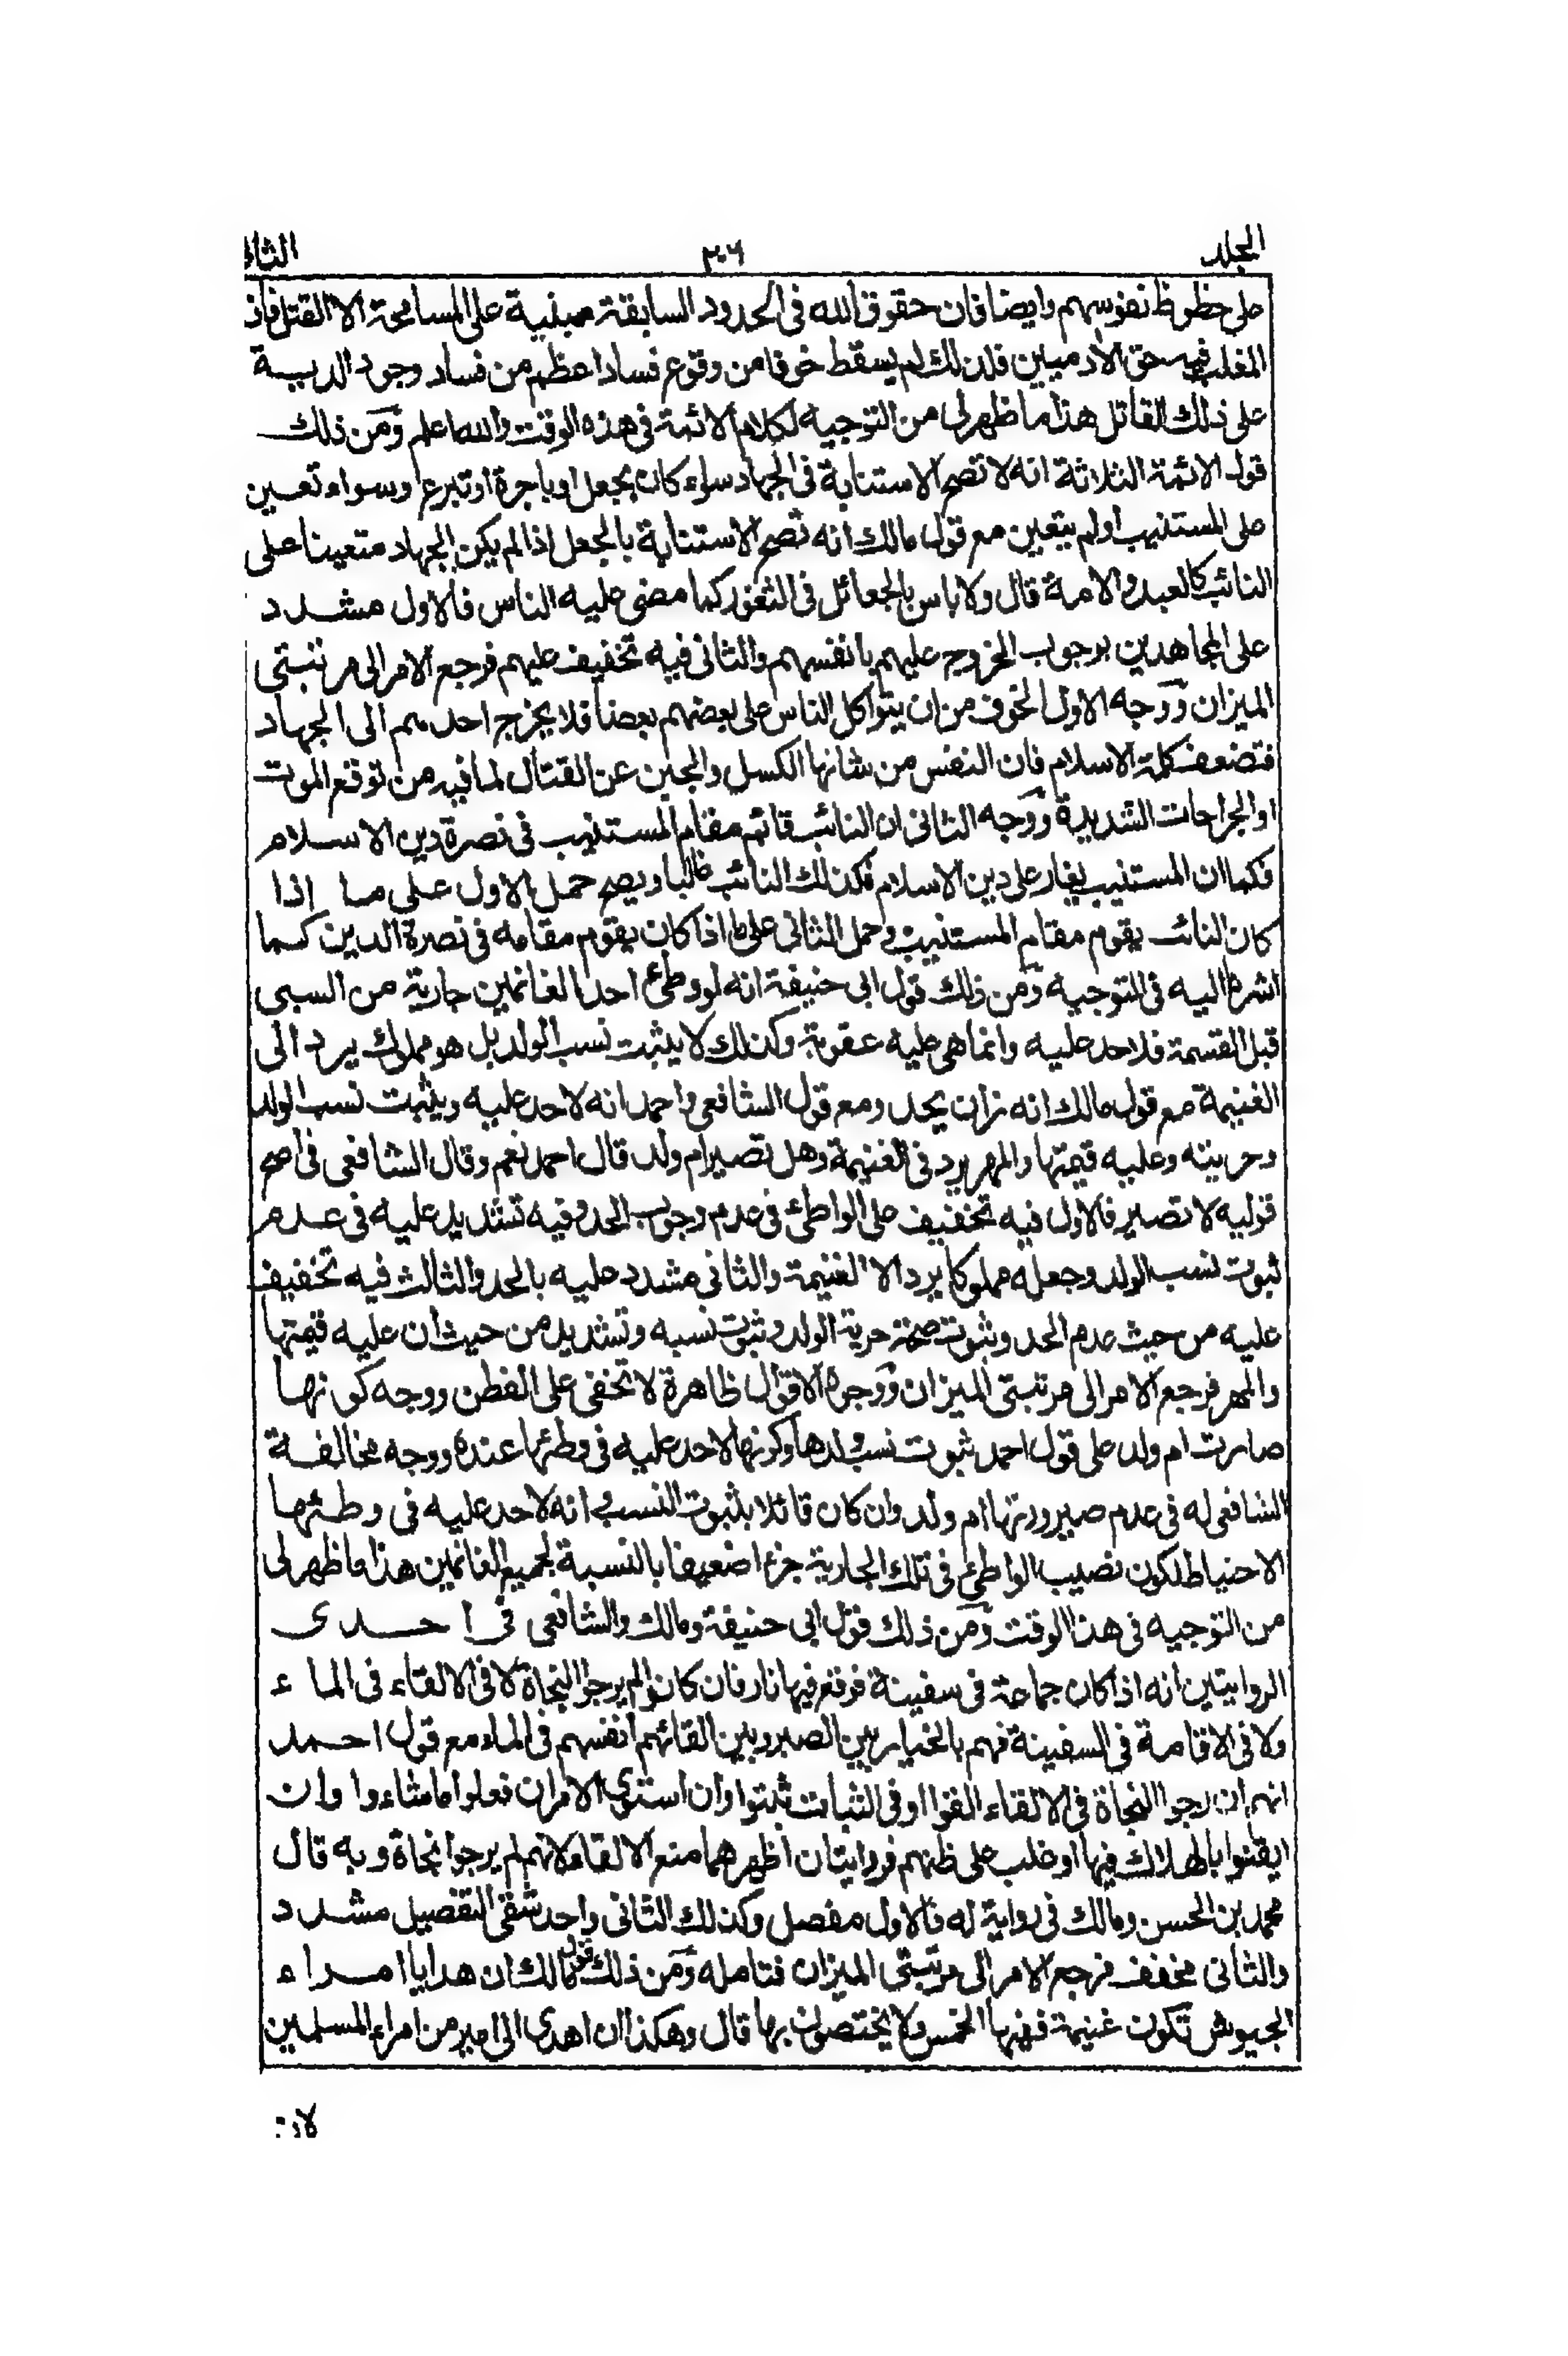 المجلد
٢٠٦
الثانى
على حظوظ نفوسهم وايضا فان حقوق الله فى الحدود السابقة مبنية على المسامحة الا القتل فان
المغلب فيه حق الآدميين فلذلك لم يسقط خوفا من وقوع فساد اعظم من فساد وجود الدية
على ذلك القاتل هذا ما ظهر لى من التوجيه لكلام الائمة فى هذه الوقت والله اعلم ومن ذلك
قول الائمة الثلاثة انه لا تصح الاستنابة فى الجهاد سواء كان بجعل او باجرة او تبرع وسواء تعين
على المستنيب او لم يتعين مع قول مالك انه تصح الاستنابة بالجعل اذا لم يكن الجهاد متعينا على
النائب كالعبد والامة قال ولا باس بالجعائل فى الثغور كما مضى عليه الناس فالاول مشدد
على المجاهدين بوجوب الخروج عليهم بانفسهم والثانى فيه تخفيف عليهم فرجع الامر الى مرتبتى
الميزان ووجه الاول الخوف من ان يتواكل الناس على بعضهم بعضا فلا يخرج احد منهم الى الجهاد
فتضعف كلمة الاسلام فان النفس من شانها الكسل والجبن عن القتال لما فيه من توقع الموت
او الجراحات الشديدة ووجه الثانى ان النائب قائم مقام المستنيب فى نصرة دين الاسلام
فكما ان المستنيب يغار على دين الاسلام فكذلك النائب غالبا ويصح حمل الاول على ما اذا
كان النائب يقوم مقام المستنيب وحمل الثانى على ما اذا كان يقوم مقامه فى نصرة الدين كما
اشرنا اليه فى التوجيه ومن ذلك قول ابى حنيفة انه لو وطئ احد الغانمين جارية من السبى
قبل القسمة فلا حد عليه وانما هى عليه عقوبة وكذلك لا يثبت نسب الولد بل هو مملوك يرد الى
الغنيمة مع قول مالك انه زان يحد ومع قول الشافعى واحمد انه لا حد عليه ويثبت نسب الولد
وحريته وعليه قيمتها والمهر يرد فى الغنيمة وهل تصير ام ولد قال احمد نعم وقال الشافعى فى اصح
قوليه لا تصير فالاول فيه تخفيف على الواطئ فى عدم وجوب الحد وفيه تشديد عليه فى عدم
ثبوت نسب الولد وجعله مملوكا يرد الا الغنيمة والثانى مشدد عليه بالحد والثالث فيه تخفيف
عليه من حيث عدم الحد وثبوت صحة حرية الولد وثبوت نسبه وتشديد من حيث ان عليه قيمتها
والمهر فرجع الامر الى مرتبتى الميزان ووجوه الاقوال ظاهرة لا تخفى على الفطن ووجه كونها
صارت ام ولد على قول احمد ثبوت نسب ولدها وكونها لا حد عليه فى وطئها عنده ووجه مخالفة
الشافعى له فى عدم صيرورتها ام ولد وان كان قائلا بثبوت النسب وانه لا حد عليه فى وطئها
الاحتياط لكون نصيب الواطئ فى تلك الجارية جزءا ضعيفا بالنسبة لجميع الغانمين هذا ما ظهر لى
من التوجيه فى هذا الوقت ومن ذلك قول ابى حنيفة ومالك والشافعى فى احدى
الروايتين انه اذا كان جماعة فى سفينة فوقع فيها نار فان كانوا لم يرجوا النجاة لا فى الالقاء فى الماء
ولا فى الاقامة فى السفينة فهم بالخيار بين الصبر وبين القائهم انفسهم فى الماء مع قول احمد
انهم ان رجوا النجاة فى الالقاء القوا او فى الثبات ثبتوا وان استوى الامران فعلوا ما شاءوا وان
ايقنوا بالهلاك فيها او غلب على ظنهم فروايتان اظهرهما منع الالقاء لانهم لم يرجوا نجاة وبه قال
محمد بن الحسن ومالك فى رواية له فالاول مفصل وكذلك الثانى واحد شقى التفصيل مشدد
والثانى مخفف فرجع الامر الى مرتبتى الميزان فتامله ومن ذلك قول مالك ان هدايا امراء
الجيوش تكون غنيمة ففيها الخمس ولا يختصون بها قال وهكذا ان اهدى الى امير من امراء المسلمين
لان